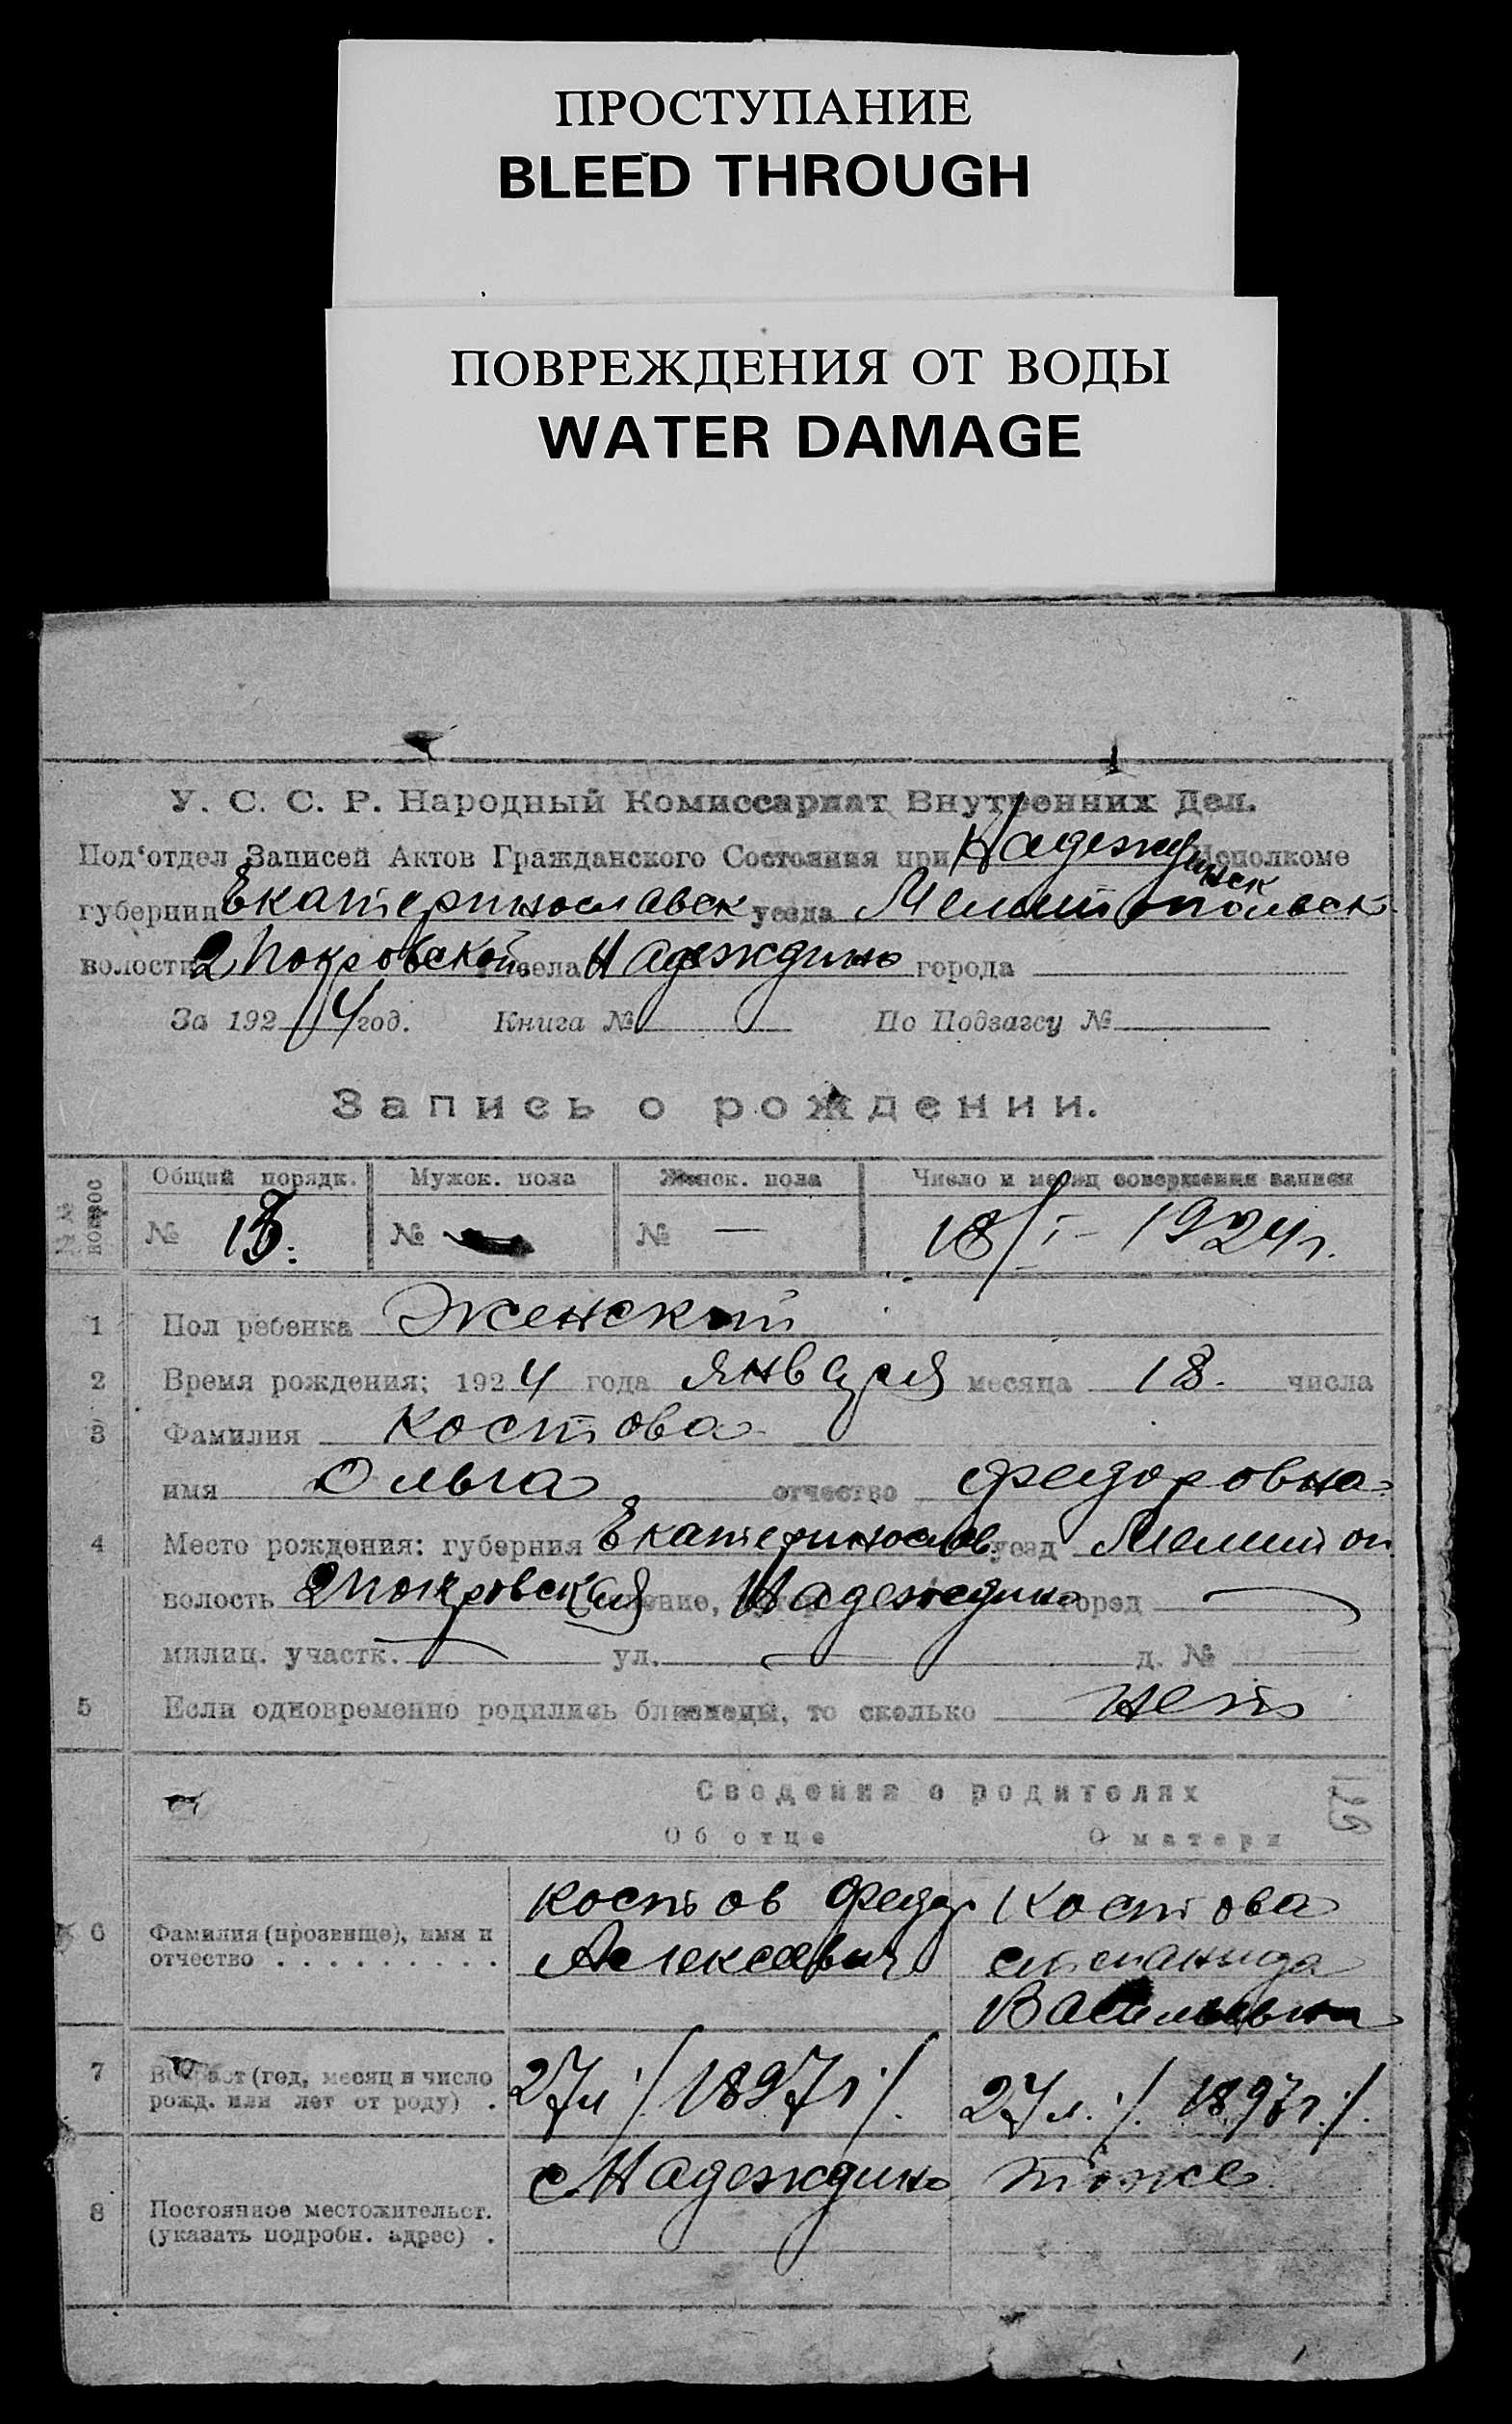 ПРОСТУПАНИЕ
BLEED THROUGH
ПОВРЕЖДЕНИЯ ОТ ВОДЫ
WATER DAMAGE
У. С. С. Р. Народный Комиссариат Внутренних Дел.
Под‘отдел Записей Актов Гражданского Состояния при Надеждинск Исполкоме
губернии Екатеринославск уезда Мелитопольск
волости 2 Покровской села Надеждино города
За 1924 год. Книга № По Подзагсу №
Запись о рождении.
№№ вопрос
Общий порядк. Мужск. пола Женск. пола Число и месяц совершения записи
№ № № — 18/I – 1924 г.
1 Пол ребенка Женский
2 Время рождения: 1924 года января месяца 18. числа
3 Фамилия Костова
имя Ольга отчество Федоровна
4 Место рождения: губерния Екатеринослав. уезд Мелитоп.
волость 2 Покровская Надеждино город —
милиц. участк. — ул. — д. № —
5 Если одновременно родились близнецы, то сколько нет
129
Сведения о родителях
Об отце О матери
6 Фамилия (прозвище), имя и отчество . . . . . . . . .
Костов Федор Алексеевич
Костова Степанида Васильевна
7 Возраст (год, месяц и число рожд. или лет от роду) .
27 л ·/. 1897 г ·/.
27 л. ·/. 1897 г. ·/.
8 Постоянное местожительст. (указать подробн. адрес) .
с. Надеждино
тоже